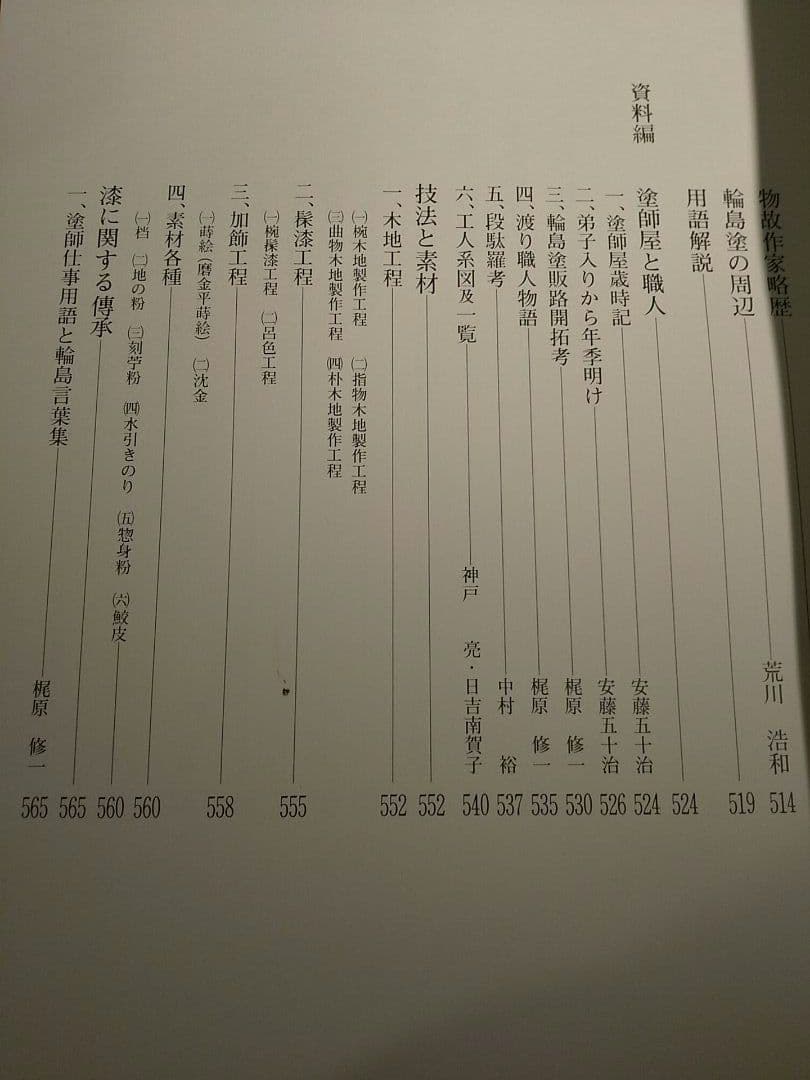 物故作家略歴
輪島塗の周辺 荒川 浩和 514
用語解説 519
資料編
塗師屋と職人 524
一、塗師屋歳時記 安藤五十治 524
二、弟子入りから年季明け 安藤五十治 526
三、輪島塗販路開拓考 梶原 修一 530
四、渡り職人物語 梶原 修一 535
五、段駄羅考 中村 裕 537
六、工人系図及一覧 神戸 亮・日吉南賀子 540
技法と素材 552
一、木地工程 552
㈠椀木地製作工程 ㈡指物木地製作工程
㈢曲物木地製作工程 ㈣朴木地製作工程
二、髹漆工程 555
㈠椀髹漆工程 ㈡呂色工程
三、加飾工程 558
㈠蒔絵(磨金平蒔絵) ㈡沈金
四、素材各種 560
㈠档 ㈡地の粉 ㈢刻苧粉 ㈣水引きのり ㈤惣身粉 ㈥鮫皮 560
漆に関する傳承 565
一、塗師仕事用語と輪島言葉集 梶原 修一 565